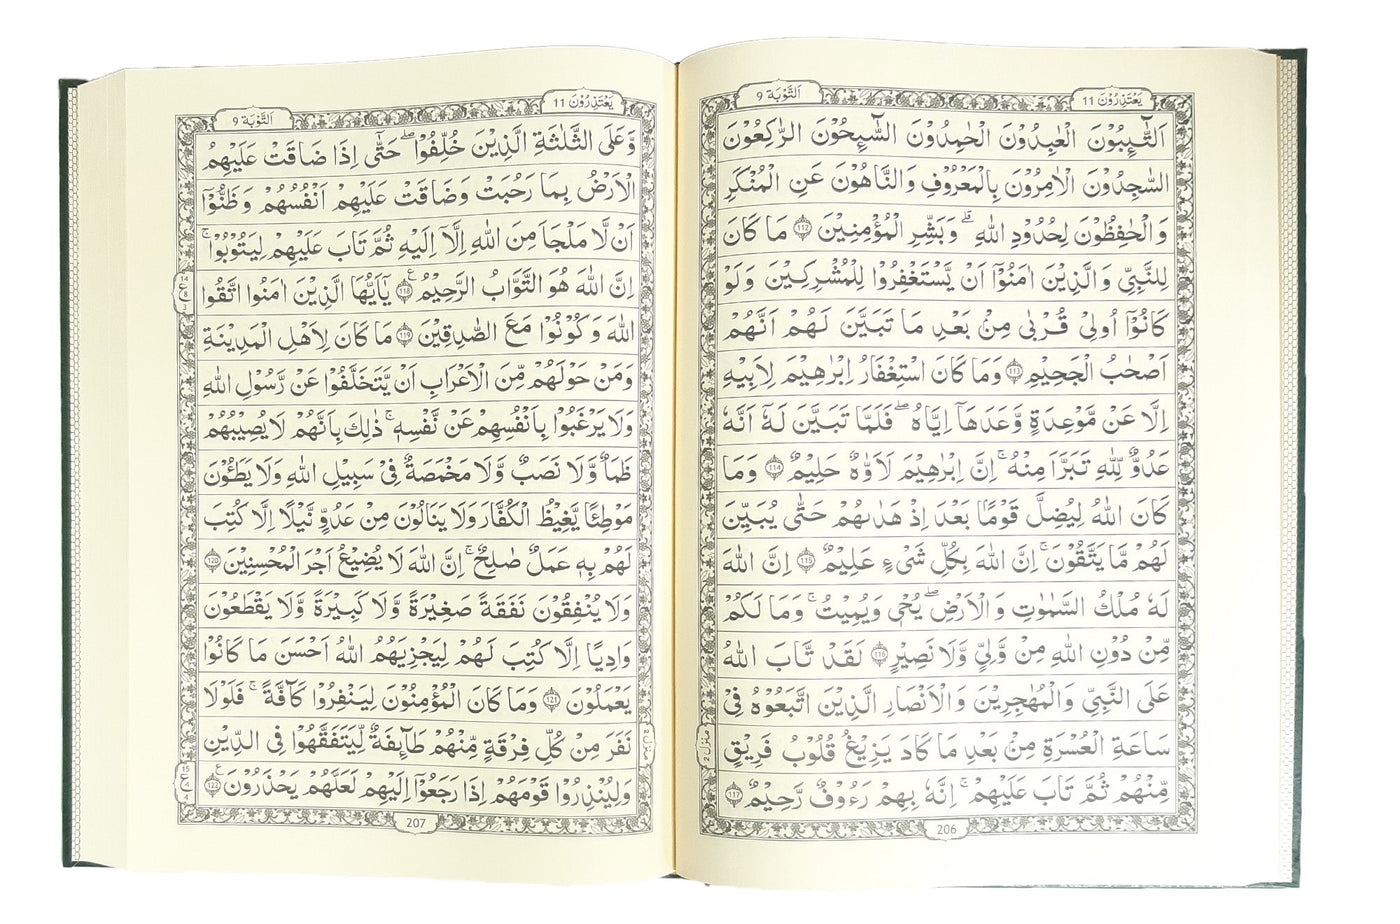 اَلتَّوْبَة 9
يَعْتَذِرُوْنَ 11
اَلتَّآئِبُوْنَ الْعٰبِدُوْنَ الْحٰمِدُوْنَ السَّآئِحُوْنَ الرّٰكِعُوْنَ
السّٰجِدُوْنَ الْاٰمِرُوْنَ بِالْمَعْرُوْفِ وَالنَّاهُوْنَ عَنِ الْمُنْكَرِ
وَالْحٰفِظُوْنَ لِحُدُوْدِ اللّٰهِ ؕ وَبَشِّرِ الْمُؤْمِنِيْنَ 112 مَا كَانَ
لِلنَّبِيِّ وَالَّذِيْنَ اٰمَنُوْۤا اَنْ يَّسْتَغْفِرُوْا لِلْمُشْرِكِيْنَ وَلَوْ
كَانُوْۤا اُولِيْ قُرْبٰى مِنْۢ بَعْدِ مَا تَبَيَّنَ لَهُمْ اَنَّهُمْ
اَصْحٰبُ الْجَحِيْمِ 113 وَمَا كَانَ اسْتِغْفَارُ اِبْرٰهِيْمَ لِاَبِيْهِ
اِلَّا عَنْ مَّوْعِدَةٍ وَّعَدَهَاۤ اِيَّاهُ ۖ فَلَمَّا تَبَيَّنَ لَهٗۤ اَنَّهٗ
عَدُوٌّ لِّلّٰهِ تَبَرَّاَ مِنْهُ ؕ اِنَّ اِبْرٰهِيْمَ لَاَوَّاهٌ حَلِيْمٌ 114 وَمَا
كَانَ اللّٰهُ لِيُضِلَّ قَوْمًاۢ بَعْدَ اِذْ هَدٰىهُمْ حَتّٰى يُبَيِّنَ
لَهُمْ مَّا يَتَّقُوْنَ ؕ اِنَّ اللّٰهَ بِكُلِّ شَيْءٍ عَلِيْمٌ 115 اِنَّ اللّٰهَ
لَهٗ مُلْكُ السَّمٰوٰتِ وَالْاَرْضِ ۖ يُحْيٖ وَيُمِيْتُ ؕ وَمَا لَكُمْ
مِّنْ دُوْنِ اللّٰهِ مِنْ وَّلِيٍّ وَّلَا نَصِيْرٍ 116 لَقَدْ تَّابَ اللّٰهُ
عَلَى النَّبِيِّ وَالْمُهٰجِرِيْنَ وَالْاَنْصَارِ الَّذِيْنَ اتَّبَعُوْهُ فِيْ
سَاعَةِ الْعُسْرَةِ مِنْۢ بَعْدِ مَا كَادَ يَزِيْغُ قُلُوْبُ فَرِيْقٍ
مِّنْهُمْ ثُمَّ تَابَ عَلَيْهِمْ ؕ اِنَّهٗ بِهِمْ رَءُوْفٌ رَّحِيْمٌ 117
منزل 2
206
اَلتَّوْبَة 9
يَعْتَذِرُوْنَ 11
وَّعَلَى الثَّلٰثَةِ الَّذِيْنَ خُلِّفُوْا ۖ حَتّٰۤى اِذَا ضَاقَتْ عَلَيْهِمُ
الْاَرْضُ بِمَا رَحُبَتْ وَضَاقَتْ عَلَيْهِمْ اَنْفُسُهُمْ وَظَنُّوْۤا
اَنْ لَّا مَلْجَاَ مِنَ اللّٰهِ اِلَّاۤ اِلَيْهِ ثُمَّ تَابَ عَلَيْهِمْ لِيَتُوْبُوْا ؕ
اِنَّ اللّٰهَ هُوَ التَّوَّابُ الرَّحِيْمُ 118 يٰۤاَيُّهَا الَّذِيْنَ اٰمَنُوا اتَّقُوا
اللّٰهَ وَكُوْنُوْا مَعَ الصّٰدِقِيْنَ 119 مَا كَانَ لِاَهْلِ الْمَدِيْنَةِ
وَمَنْ حَوْلَهُمْ مِّنَ الْاَعْرَابِ اَنْ يَّتَخَلَّفُوْا عَنْ رَّسُوْلِ اللّٰهِ
وَلَا يَرْغَبُوْا بِاَنْفُسِهِمْ عَنْ نَّفْسِهٖ ؕ ذٰلِكَ بِاَنَّهُمْ لَا يُصِيْبُهُمْ
ظَمَاٌ وَّلَا نَصَبٌ وَّلَا مَخْمَصَةٌ فِيْ سَبِيْلِ اللّٰهِ وَلَا يَطَـُٔوْنَ
مَوْطِئًا يَّغِيْظُ الْكُفَّارَ وَلَا يَنَالُوْنَ مِنْ عَدُوٍّ نَّيْلًا اِلَّا كُتِبَ
لَهُمْ بِهٖ عَمَلٌ صَالِحٌ ؕ اِنَّ اللّٰهَ لَا يُضِيْعُ اَجْرَ الْمُحْسِنِيْنَ 120
وَلَا يُنْفِقُوْنَ نَفَقَةً صَغِيْرَةً وَّلَا كَبِيْرَةً وَّلَا يَقْطَعُوْنَ
وَادِيًا اِلَّا كُتِبَ لَهُمْ لِيَجْزِيَهُمُ اللّٰهُ اَحْسَنَ مَا كَانُوْا
يَعْمَلُوْنَ 121 وَمَا كَانَ الْمُؤْمِنُوْنَ لِيَنْفِرُوْا كَآفَّةً ؕ فَلَوْلَا
نَفَرَ مِنْ كُلِّ فِرْقَةٍ مِّنْهُمْ طَآئِفَةٌ لِّيَتَفَقَّهُوْا فِي الدِّيْنِ
وَلِيُنْذِرُوْا قَوْمَهُمْ اِذَا رَجَعُوْۤا اِلَيْهِمْ لَعَلَّهُمْ يَحْذَرُوْنَ 122
منزل 2
207